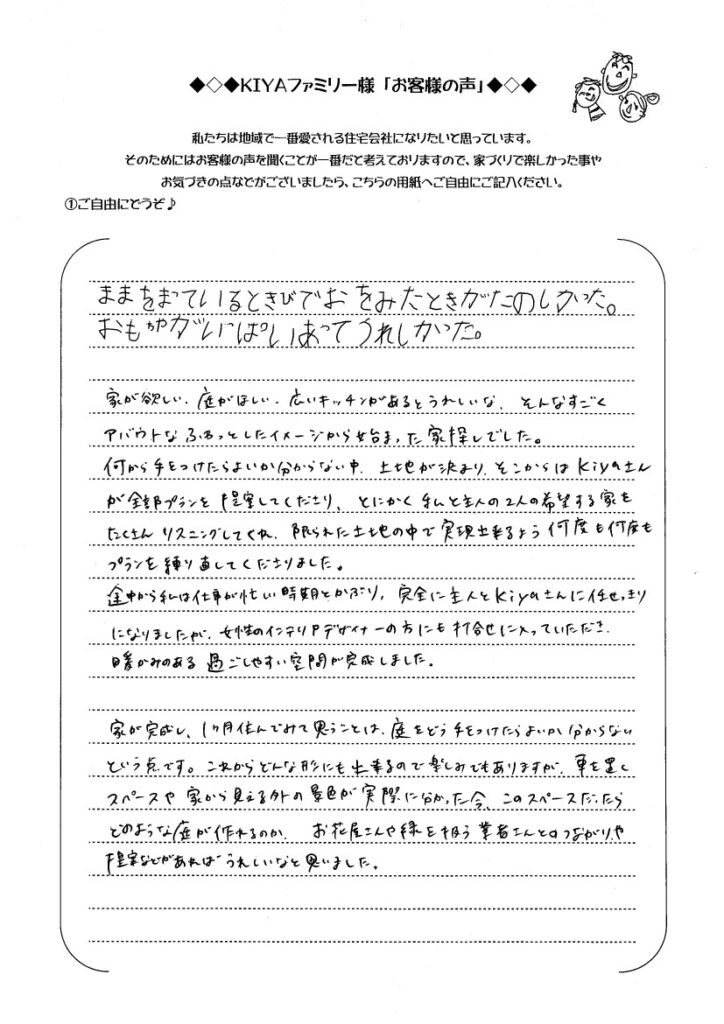 ◆◇◆KIYAファミリー様「お客様の声」◆◇◆
私たちは地域で一番愛される住宅会社になりたいと思っています。
そのためにはお客様の声を聞くことが一番だと考えておりますので、家づくりで楽しかった事や
お気づきの点などがございましたら、こちらの用紙へご自由にご記入ください。
①ご自由にどうぞ♪
ままをまっているときびでおをみたときがたのしかった。
おもやがいっぱいあってうれしかった。
家が欲しい、庭がほしい、広いキッチンがあるとうれしいな、そんなすごく
アバウトなふわっとしたイメージから始まった家探しでした。
何から手をつけたらよいか分からない中、土地が決まり、そこからはKiyaさん
が全部プランを提案してくださり、とにかく私と主人の2人の希望する家を
たくさんリスニングしてくれ、限られた土地の中で実現出来るよう何度も何度も
プランを練り直してくださりました。
途中から私は仕事が忙しい時期とかぶり、完全に主人とKiyaさんに任せっきり
になりましたが、女性のインテリアデザイナーの方にも打合せに入っていただき、
暖かみのある過ごしやすい空間が完成しました。
家が完成し、1ヶ月住んでみて思うことは、庭をどう手をつけたらよいか分からない
という点です。これからどんな形にも出来るので楽しみでもありますが、車を置く
スペースや家から見える外の景色が実際に分かった今、このスペースだったら
どのような庭が作れるのか、お花屋さんや緑を扱う業者さんとのつながりや
提案などがあればうれしいなと思いました。